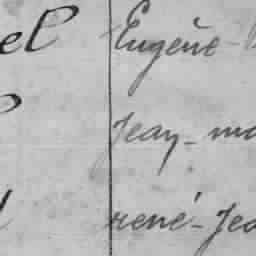 el Eugène
Jean-ma
rené-Jea